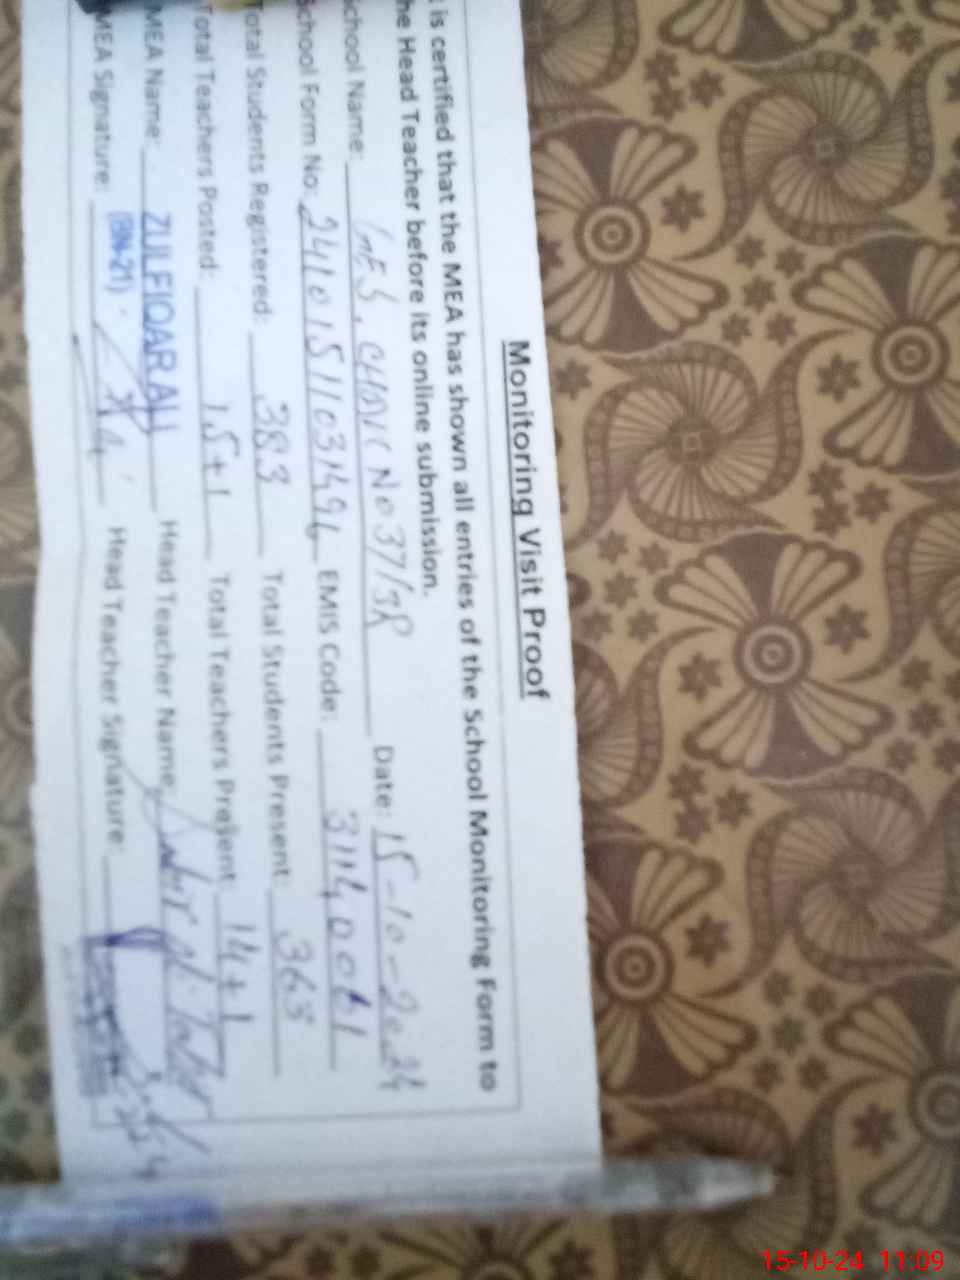 Monitoring Visit Proof
is certified that the MEA has shown all entries of the School Monitoring Form to
he Head Teacher before its online submission.
chool Name: GES, CHAK No 37/3R Date: 15-10-2024
School Form No: EMIS Code: 31140061
Total Students Registered: 383 Total Students Present: 365
Total Teachers Posted: 15+1 Total Teachers Present: 14+1
MEA Name: ZULFIQAR ALI Head Teacher Name:
(BN-21)
MEA Signature: Head Teacher Signature:
15-10-24 11:09